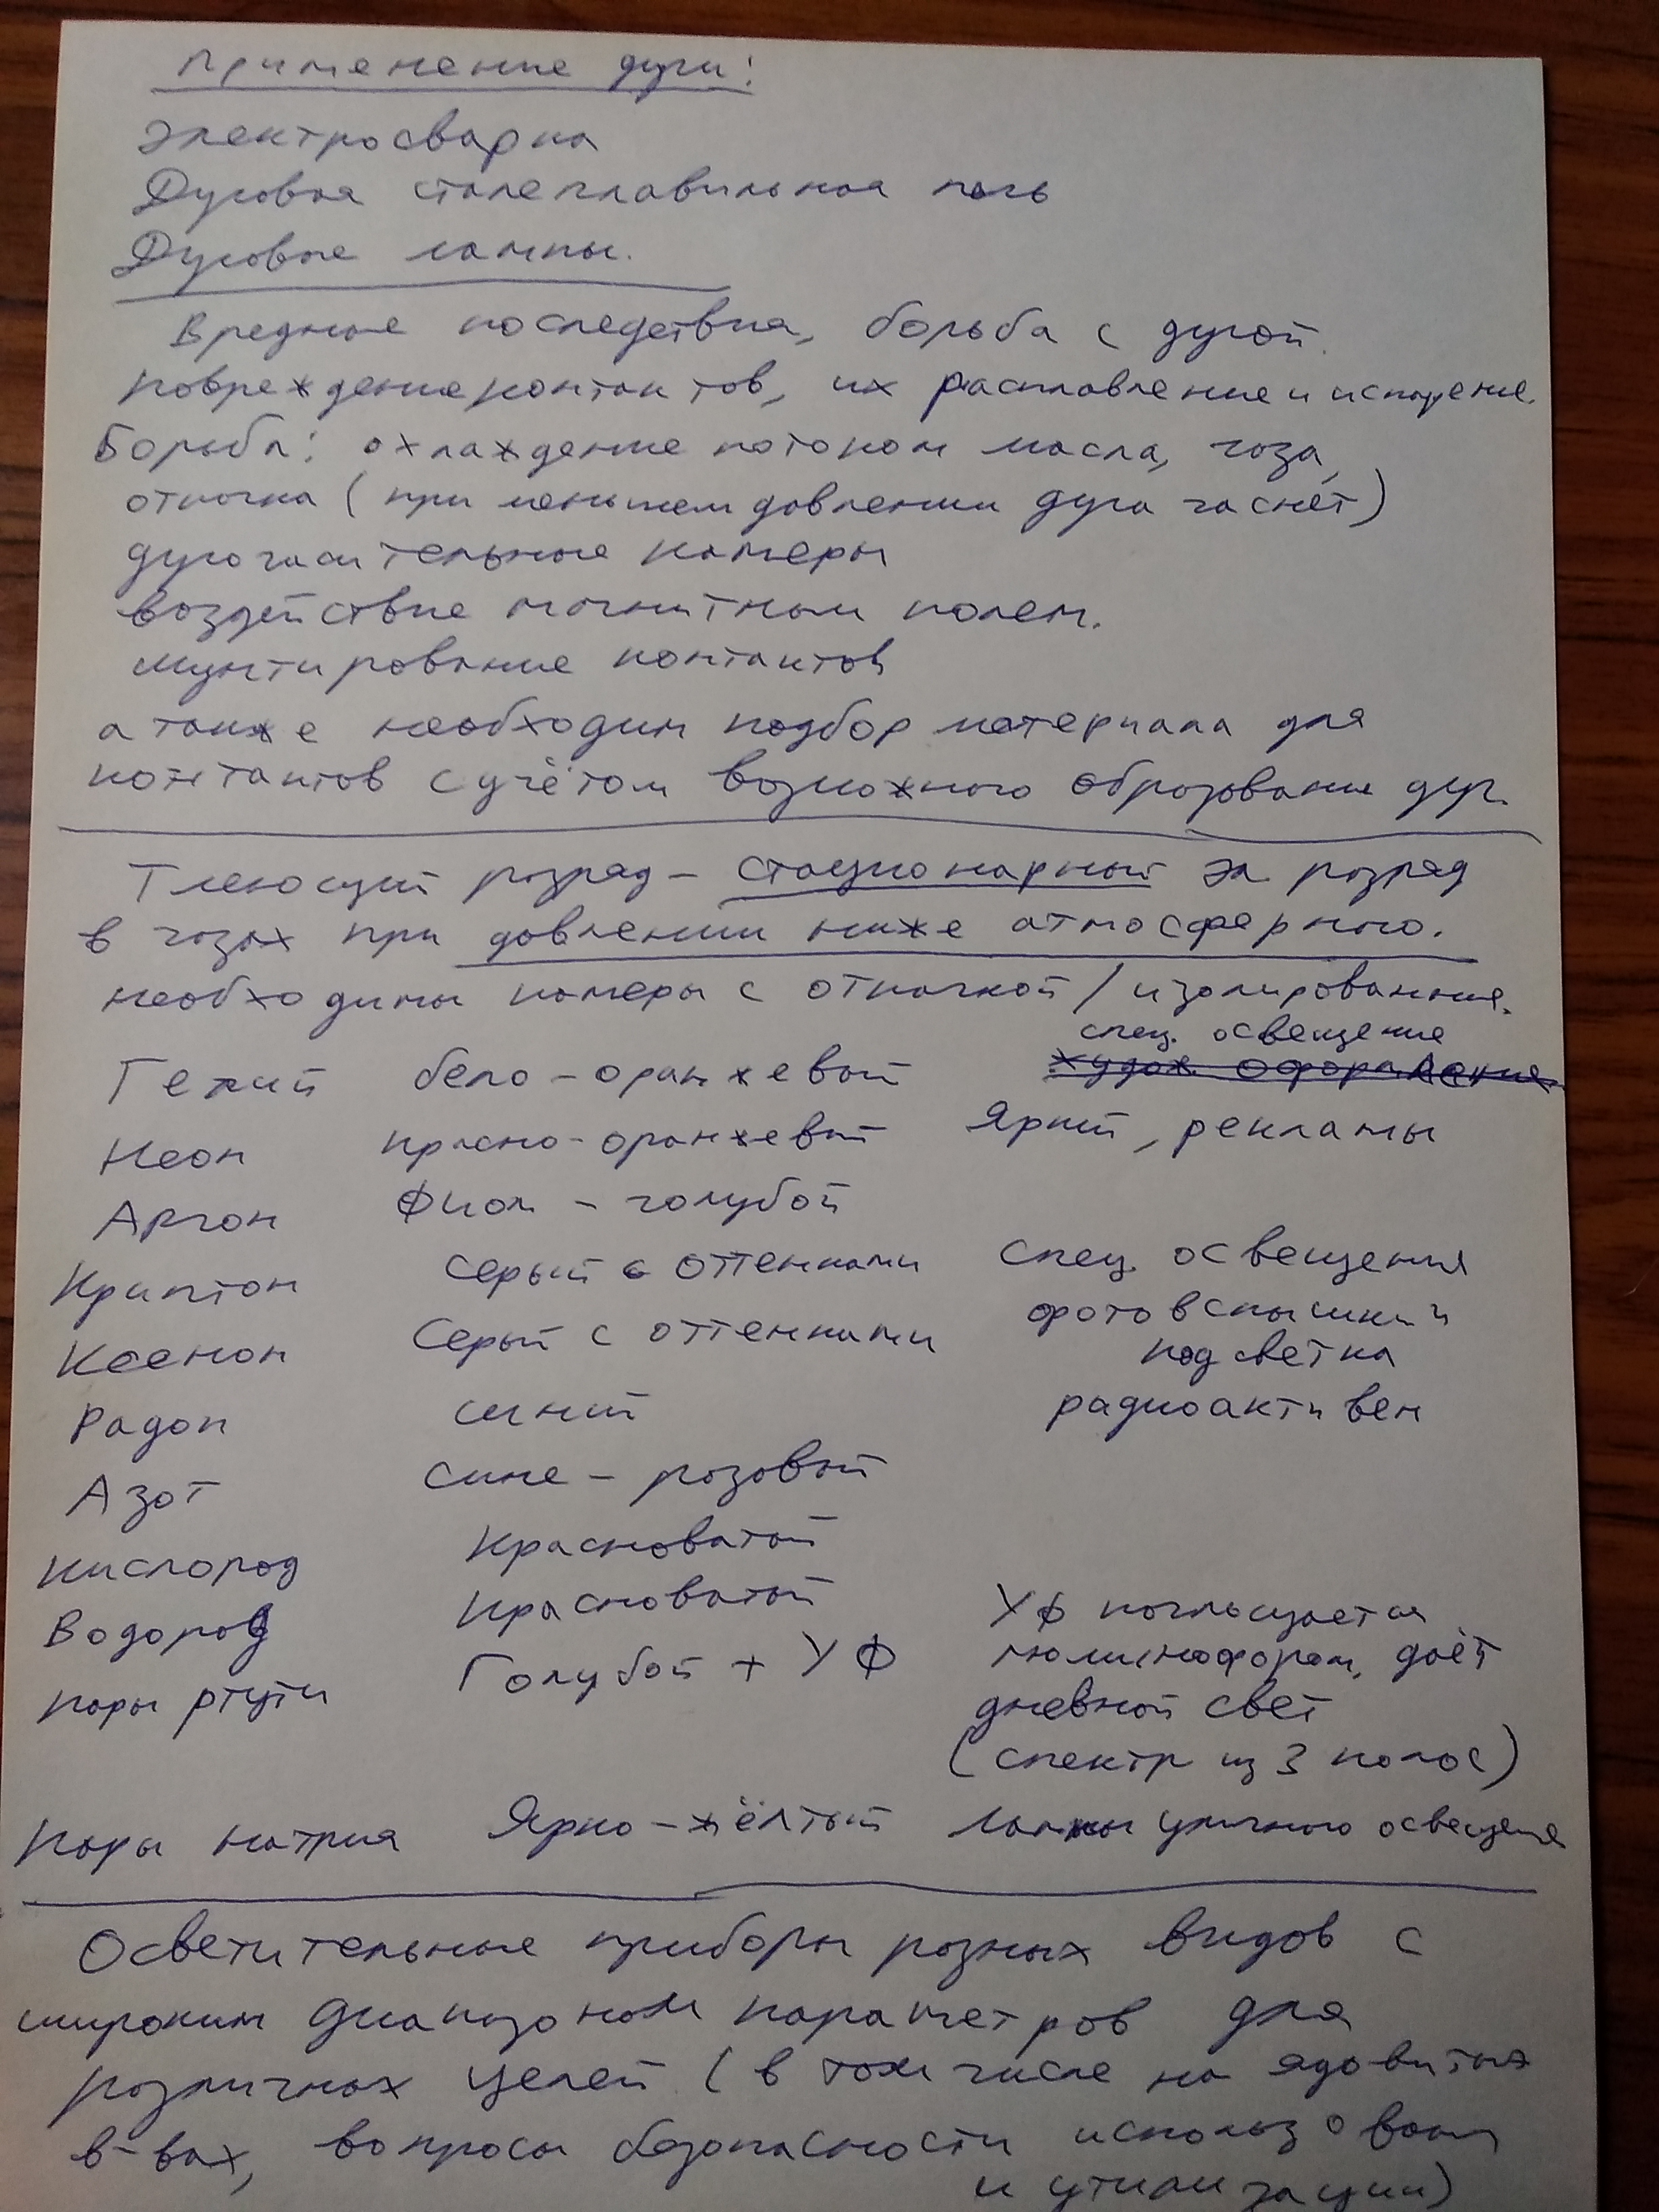 Применение дуги:
Электросварка
Дуговая сталеплавильная печь
Дуговые лампы.
Вредные последствия, борьба с дугой.
повреждение контактов, их расплавление и испарение.
Борьба: охлаждение потоком масла, газа,
откачка (при меньшем давлении дуга гаснет)
дугогасительные камеры
воздействие магнитным полем.
шунтирование контактов
а также необходим подбор материала для
контактов с учётом возможного образования дуг.
Тлеющий разряд - стационарный эл. разряд
в газах при давлении ниже атмосферного.
необходимы камеры с откачкой / изолированные.
спец. освещение
Гелий бело-оранжевый худож. оформление
Неон красно-оранжевый Яркий, рекламы
Аргон Фиол - голубой
Криптон Серый с оттенками спец. освещения
Ксенон Серый с оттенками фотовспышки и
подсветка
Радон синий радиоактивен
Азот Сине - розовый
Кислород Красноватый
Водород Красноватый УФ поглощается
пары ртути Голубой + УФ люминофором, даёт
дневной свет
(спектр из 3 полос)
Пары натрия Ярко-жёлтый лампы уличного освещения
Осветительные приборы разных видов с
широким диапазоном параметров для
различных целей (в том числе на ядовитых
в-вах, вопросы безопасности использования
и утилизации)